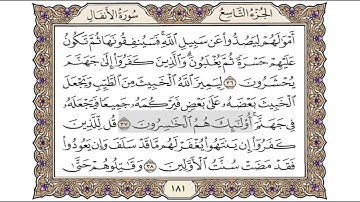 الجزء التاسع سورة الأنفال
أَمْوَٰلَهُمْ لِيَصُدُّوا۟ عَن سَبِيلِ ٱللَّهِ ۚ فَسَيُنفِقُونَهَا ثُمَّ تَكُونُ
عَلَيْهِمْ حَسْرَةً ثُمَّ يُغْلَبُونَ ۗ وَٱلَّذِينَ كَفَرُوٓا۟ إِلَىٰ جَهَنَّمَ
يُحْشَرُونَ ٣٦ لِيَمِيزَ ٱللَّهُ ٱلْخَبِيثَ مِنَ ٱلطَّيِّبِ وَيَجْعَلَ
ٱلْخَبِيثَ بَعْضَهُۥ عَلَىٰ بَعْضٍ فَيَرْكُمَهُۥ جَمِيعًا فَيَجْعَلَهُۥ
فِى جَهَنَّمَ ۚ أُو۟لَـٰٓئِكَ هُمُ ٱلْخَـٰسِرُونَ ٣٧ قُل لِّلَّذِينَ
كَفَرُوٓا۟ إِن يَنتَهُوا۟ يُغْفَرْ لَهُم مَّا قَدْ سَلَفَ وَإِن يَعُودُوا۟
فَقَدْ مَضَتْ سُنَّتُ ٱلْأَوَّلِينَ ٣٨ وَقَـٰتِلُوهُمْ حَتَّىٰ
١٨١